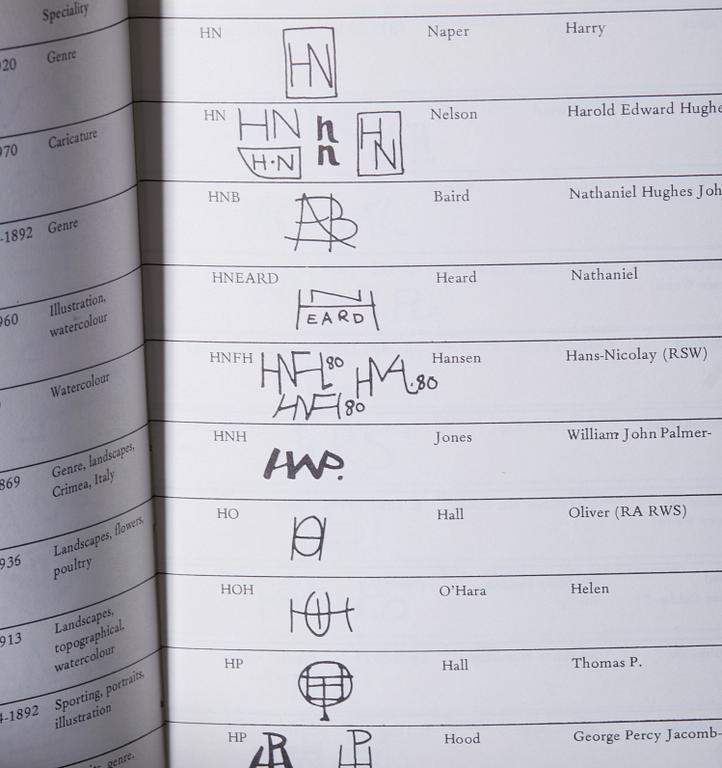 Speciality
20 Genre
70 Caricature
-1892 Genre
960 Illustration,
watercolour
Watercolour
869 Genre, landscapes,
Crimea, Italy
936 Landscapes, flowers,
poultry
913 Landscapes,
topographical,
watercolour
-1892 Sporting, portraits,
illustration
genre,
HN HN Naper Harry
HN HN n HN Nelson Harold Edward Hughe
H·N n
HNB Baird Nathaniel Hughes Joh
HNEARD HNEARD Heard Nathaniel
HNFH HNFH 80 80 Hansen Hans-Nicolay (RSW)
HNFH 80
HNH Jones William John Palmer-
HO HO Hall Oliver (RA RWS)
HOH HOH O'Hara Helen
HP Hall Thomas P.
HP Hood George Percy Jacomb-